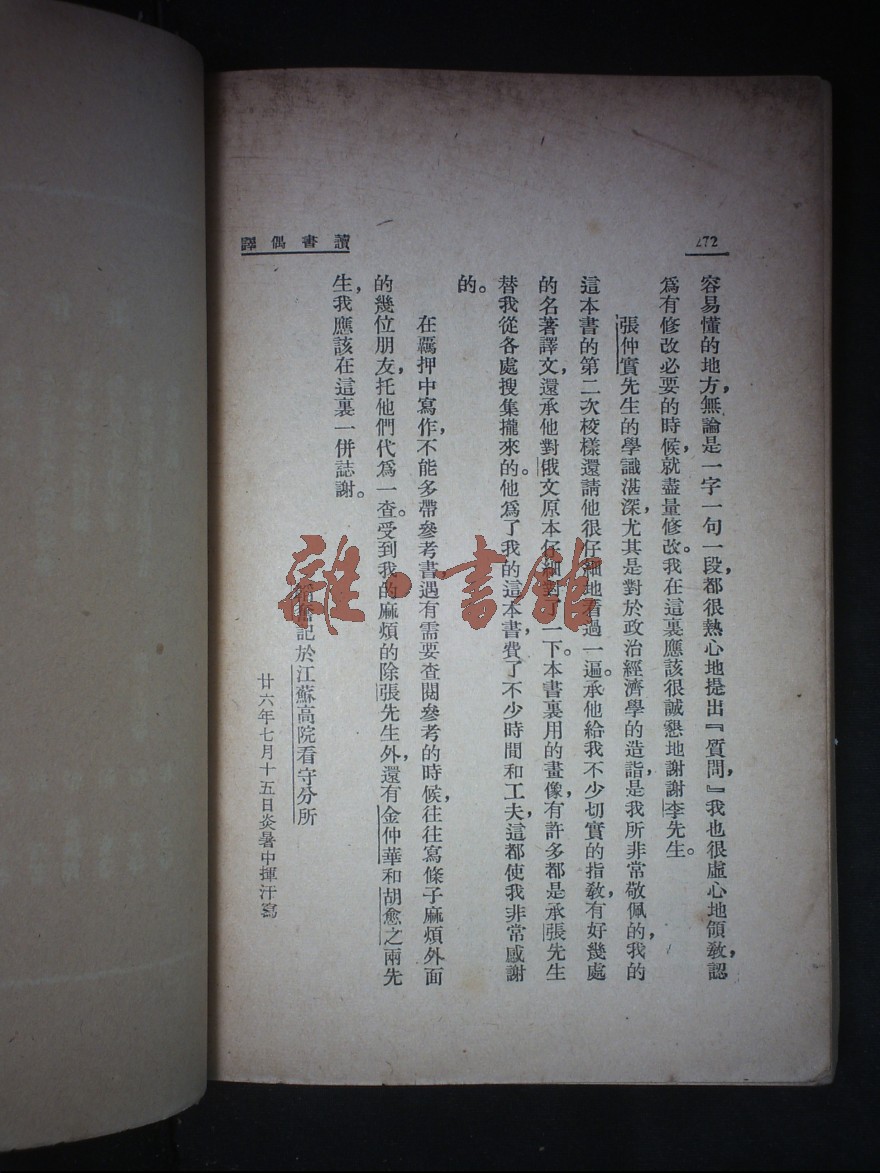 讀書偶譯
272
容易懂的地方，無論是一字一句一段，都很熱心地提出『質問，』我也很虛心地領敎，認
爲有修改必要的時候，就盡量修改。我在這裏應該很誠懇地謝謝李先生。
張仲實先生的學識湛深，尤其是對於政治經濟學的造詣，是我所非常敬佩的，我的
這本書的第二次校樣還請他很仔細地看過一遍。承他給我不少切實的指敎，有好幾處
的名著譯文，還承他對俄文原本仔細對了一下。本書裏用的畫像，有許多都是承張先生
替我從各處搜集攏來的。他爲了我的這本書，費了不少時間和工夫，這都使我非常感謝
的。
在羈押中寫作，不能多帶參考書，遇有需要查閱參考的時候，往往寫條子麻煩外面
的幾位朋友，托他們代爲一查。受到我的麻煩的除張先生外，還有金仲華和胡愈之兩先
生，我應該在這裏一併誌謝。
韜奮記於江蘇高院看守分所
廿六年七月十五日炎暑中揮汗寫
雜·書館